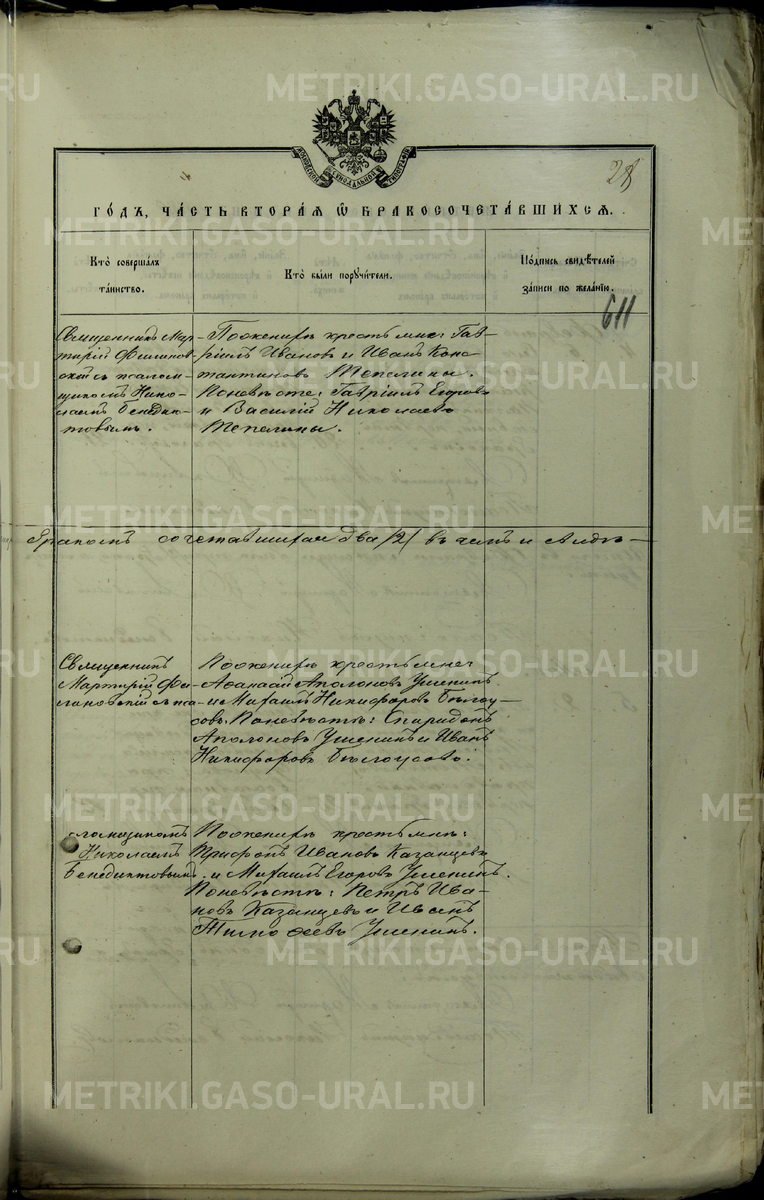 28
МОСКОВСКОЙ СѴНОДАЛЬНОЙ ТИПОГРАФІИ
ГО́ДЪ, ЧА́СТЬ ВТОРА́Я Ѡ БРАКОСОЧЕТА́ВШИХСЯ.
Кто̀ соверша́лъ
та́инство.
Кто̀ бы́ли поручи́тели.
По́дпись свидѣ́телей
за́писи по жела́нію.
611
Священникъ Мар-
тирій Филинов-
скій съ псалом-
щикомъ Нико-
лаемъ Бенедик-
товымъ.
По женихѣ крестьяне: Гав-
ріилъ Ивановъ и Иванъ Конс-
тантиновъ Тепелины.
По невѣстѣ: Гавріилъ Егоровъ
и Василій Николаевъ
Тепелины.
бракомъ сочетавшихся два /2/
Священникъ
Мартирій Фи-
линовскій съ пса-
По женихѣ крестьяне:
Афанасій Аполоновъ Ушенинъ
и Михаилъ Никифоровъ Бѣлоу-
совъ. По невѣстѣ: Спиридонъ
Аполоновъ Ушенинъ и Иванъ
Никифоровъ Бѣлоусовъ.
ломщикомъ
Николаемъ
Бенедиктовымъ.
По женихѣ крестьяне:
Трифонъ Ивановъ Казанцевъ
и Михаилъ Егоровъ Ушенинъ.
По невѣстѣ: Петръ Ива-
новъ Казанцевъ и Иванъ
Тимофеевъ Ушенинъ.
METRIKI.GASO-URAL.RU